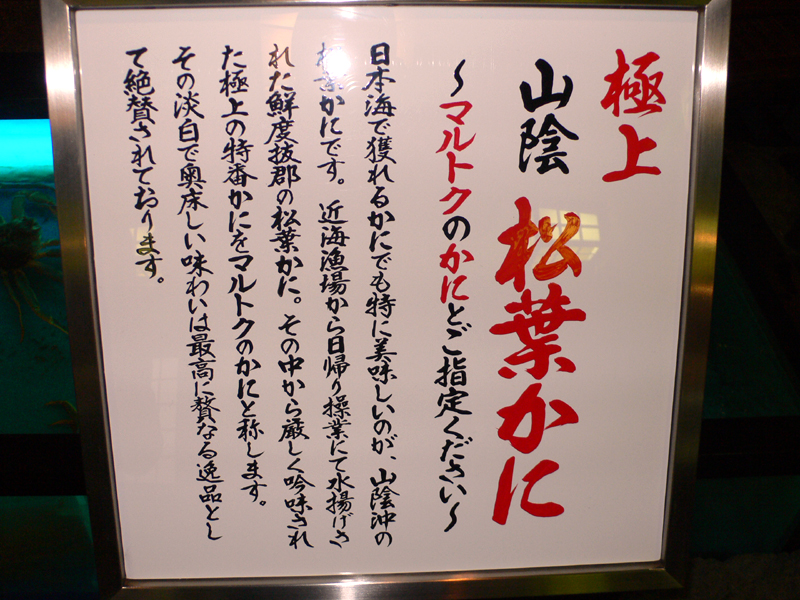 極上
山陰 松葉かに
～マルトクのかにとご指定ください～
日本海で獲れるかにでも特に美味しいのが、山陰沖の
松葉かにです。近海漁場から日帰り操業にて水揚げさ
れた鮮度抜郡の松葉かに。その中から厳しく吟味され
た極上の特番かにをマルトクのかにと称します。
その淡白で奥床しい味わいは最高に贅なる逸品とし
て絶賛されております。